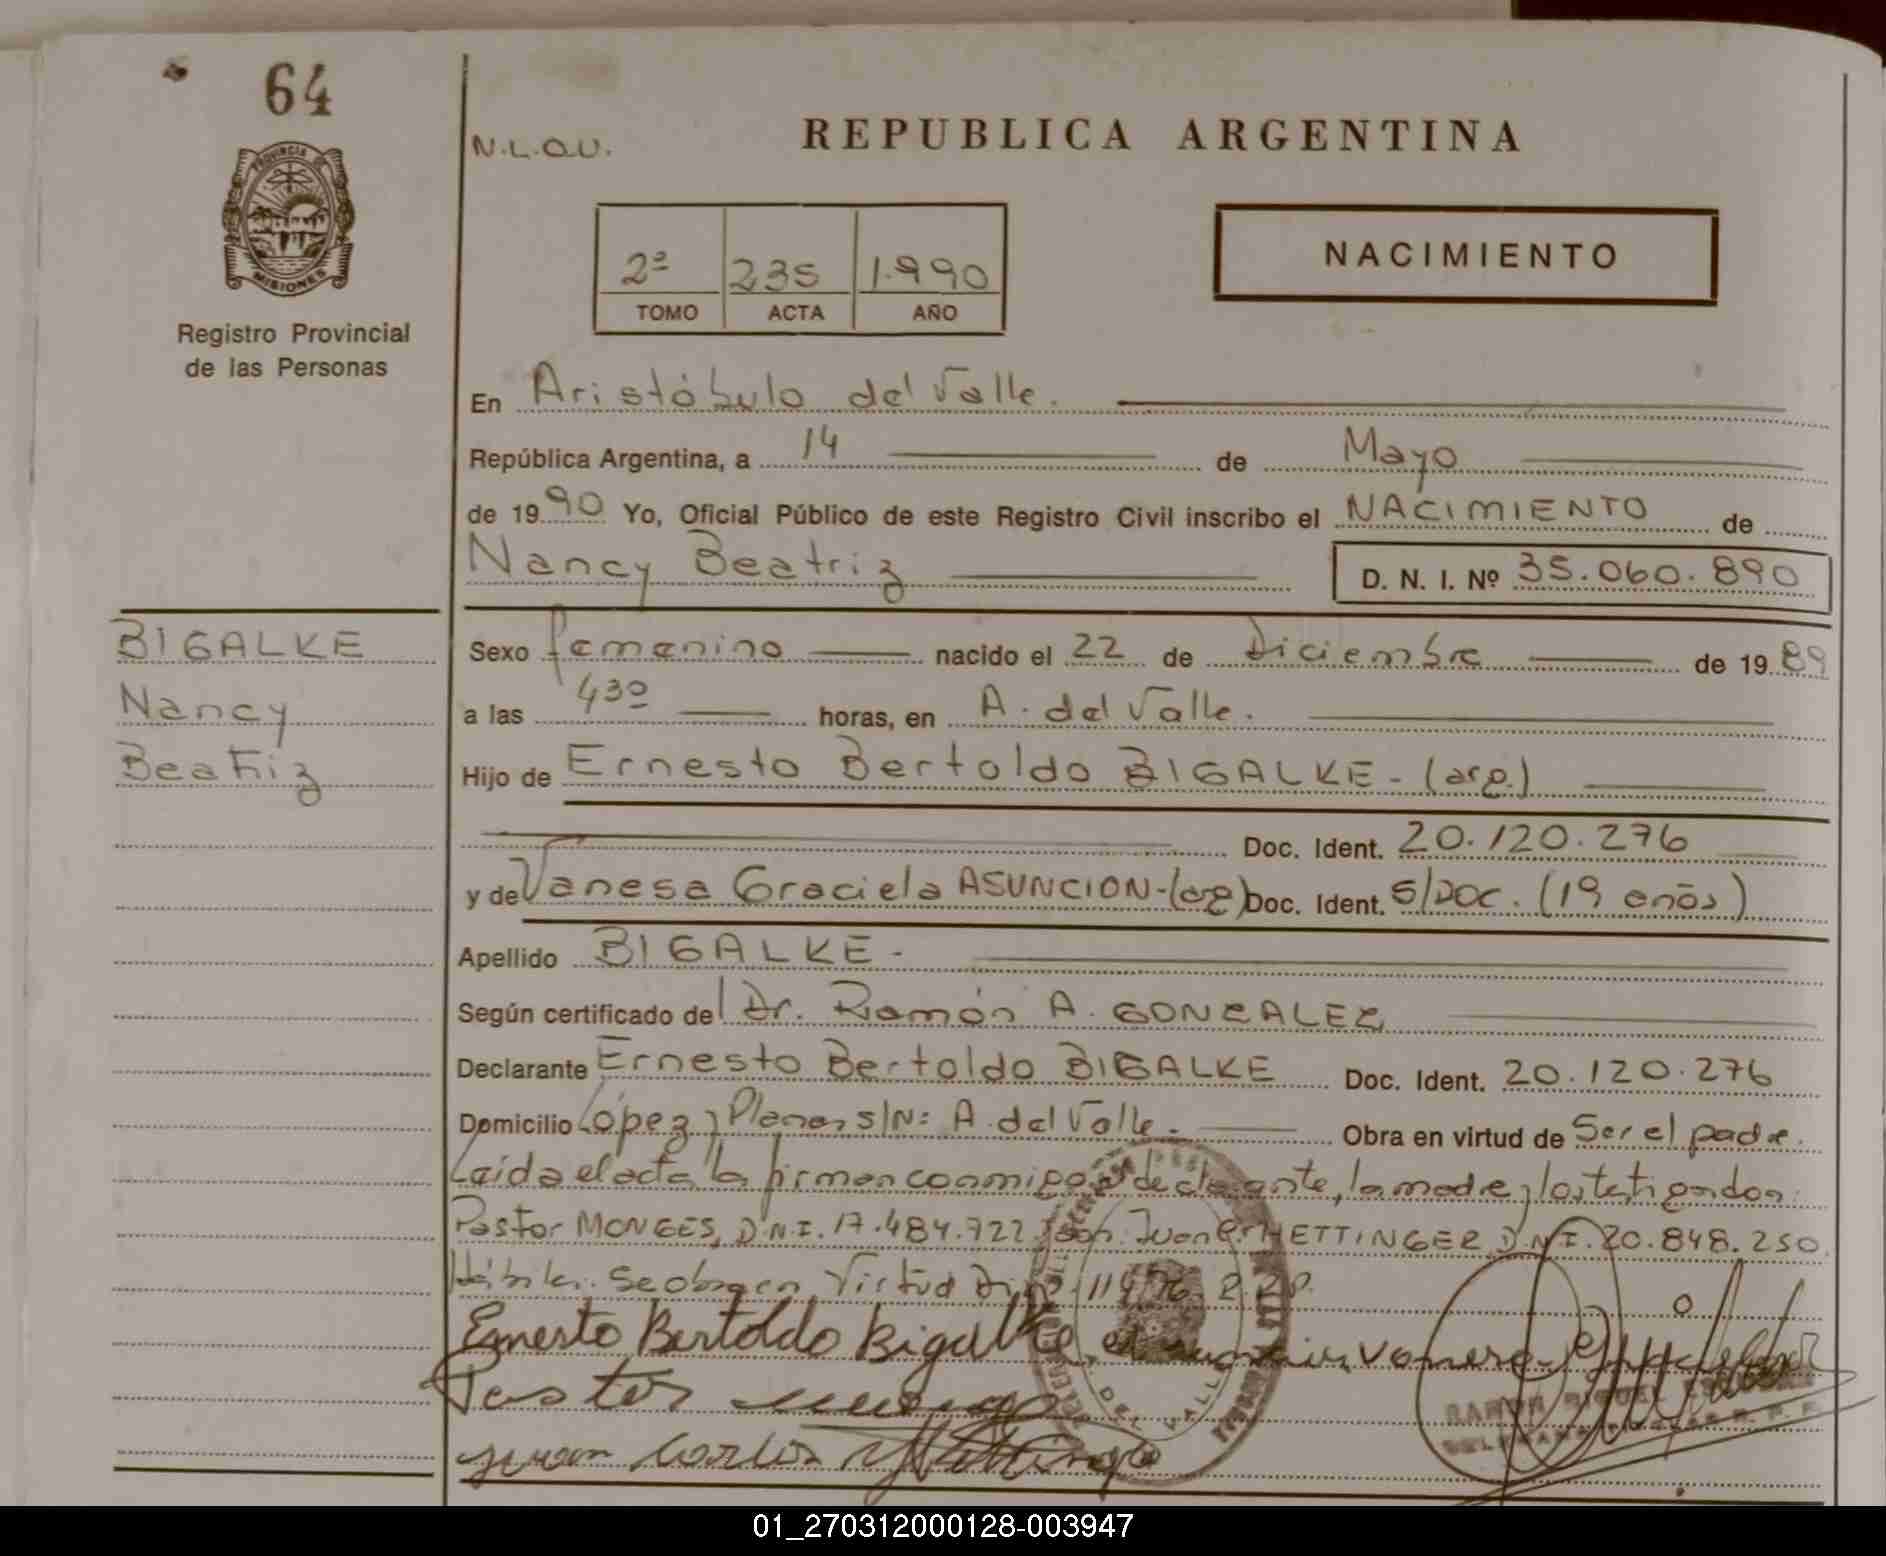 64
N.L.O.U.
REPUBLICA ARGENTINA
PROVINCIA DE
MISIONES
Registro Provincial
de las Personas
2º 235 1.990
TOMO ACTA AÑO
NACIMIENTO
En Aristóbulo del Valle.
República Argentina, a 14 de Mayo
de 1990 Yo, Oficial Público de este Registro Civil inscribo el NACIMIENTO de
Nancy Beatriz D. N. I. Nº 35.060.890
BIGALKE
Nancy
Beatriz
Sexo femenino nacido el 22 de Diciembre de 1989
a las 430 horas, en A. del Valle.
Hijo de Ernesto Bertoldo BIGALKE - (arg.)
Doc. Ident. 20.120.276
y de Vanesa Graciela ASUNCION - (arg) Doc. Ident. S/DOC. (19 años)
Apellido BIGALKE -
Según certificado del Dr. Ramón A. GONZALEZ
Declarante Ernesto Bertoldo BIGALKE Doc. Ident. 20.120.276
Domicilio López y Planes S/N: A. del Valle. Obra en virtud de Ser el padre.
Leída el acta la firman conmigo el declarante, la madre y los testigos don:
Pastor MONGES, D.N.I. 17.484.722 y don: Juan C. HETTINGER D.N.I. 20.848.250
Hábiles. Se obra en Virtud
Ernesto Bertoldo Bigalke
Pastor
Juan Carlos
DEL VALLE
01_270312000128-003947